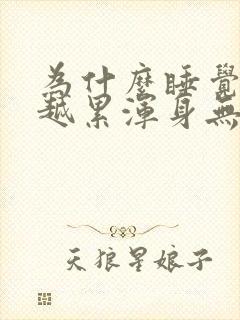 為什麼睡覺
越累渾身無
天狼星娘子